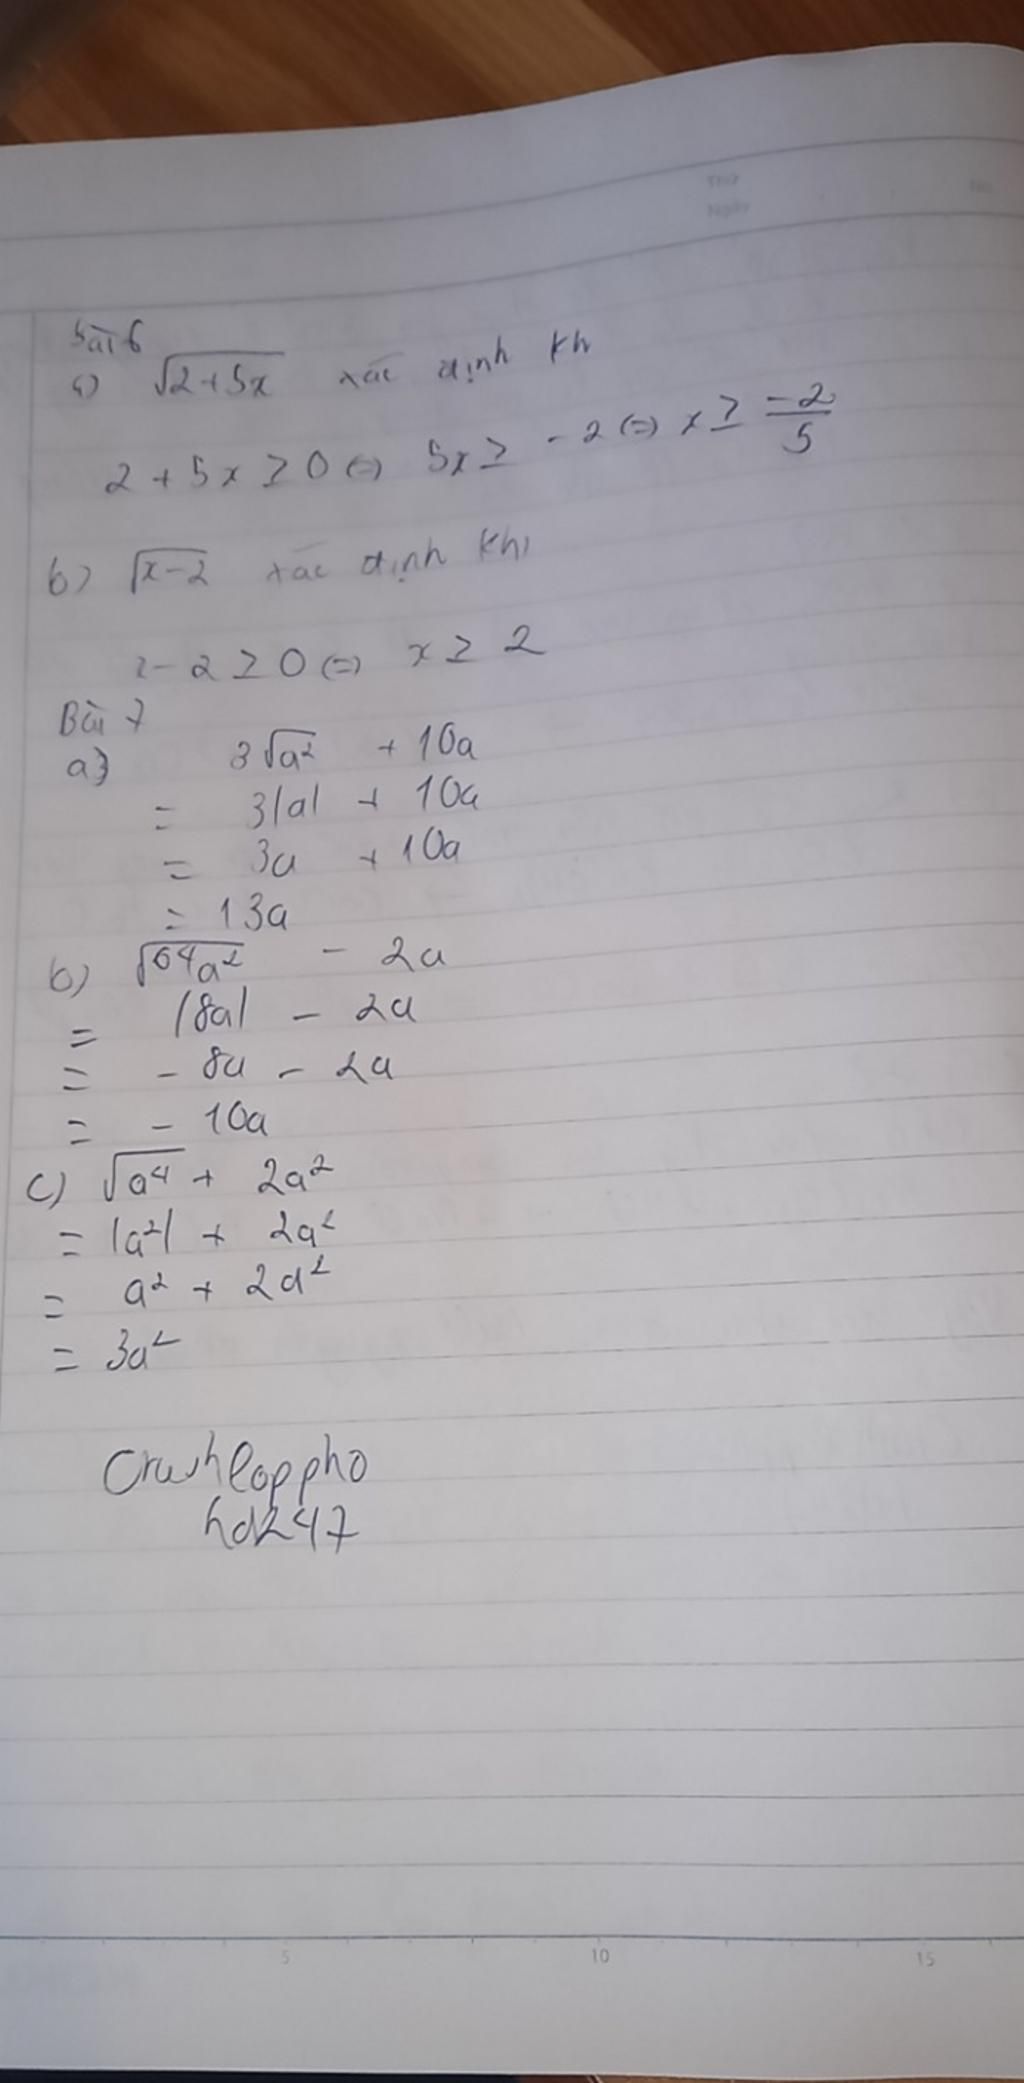 Thứ No.
Ngày
Bài 6
a) √2+5x xác định kh
2 + 5x ≥ 0 (=) 5x ≥ -2 (=) x ≥ -2/5
b) √x-2 xác định khi
x-2 ≥ 0 (=) x ≥ 2
Bài 7
a) 3√a² + 10a
= 3|a| + 10a
= 3a + 10a
= 13a
b) √64a² - 2a
= |8a| - 2a
= - 8a - 2a
= - 10a
c) √a⁴ + 2a²
= |a²| + 2a²
= a² + 2a²
= 3a²
Crushloppho
hd247
5 10 15